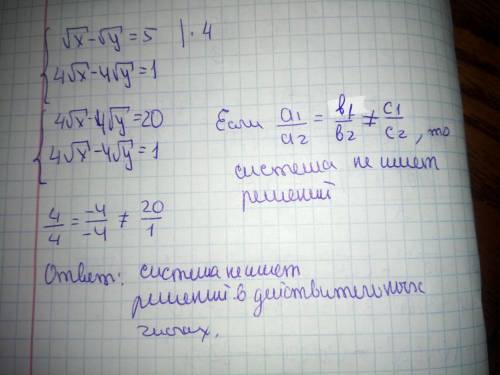 √x - √y = 5 | · 4
4√x - 4√y = 1
4√x - 4√y = 20
4√x - 4√y = 1
Если a₁/a₂ = b₁/b₂ ≠ c₁/c₂, то
система не имеет
решений
4/4 = -4/-4 ≠ 20/1
Ответ: система не имеет
решений в действительных
числах.